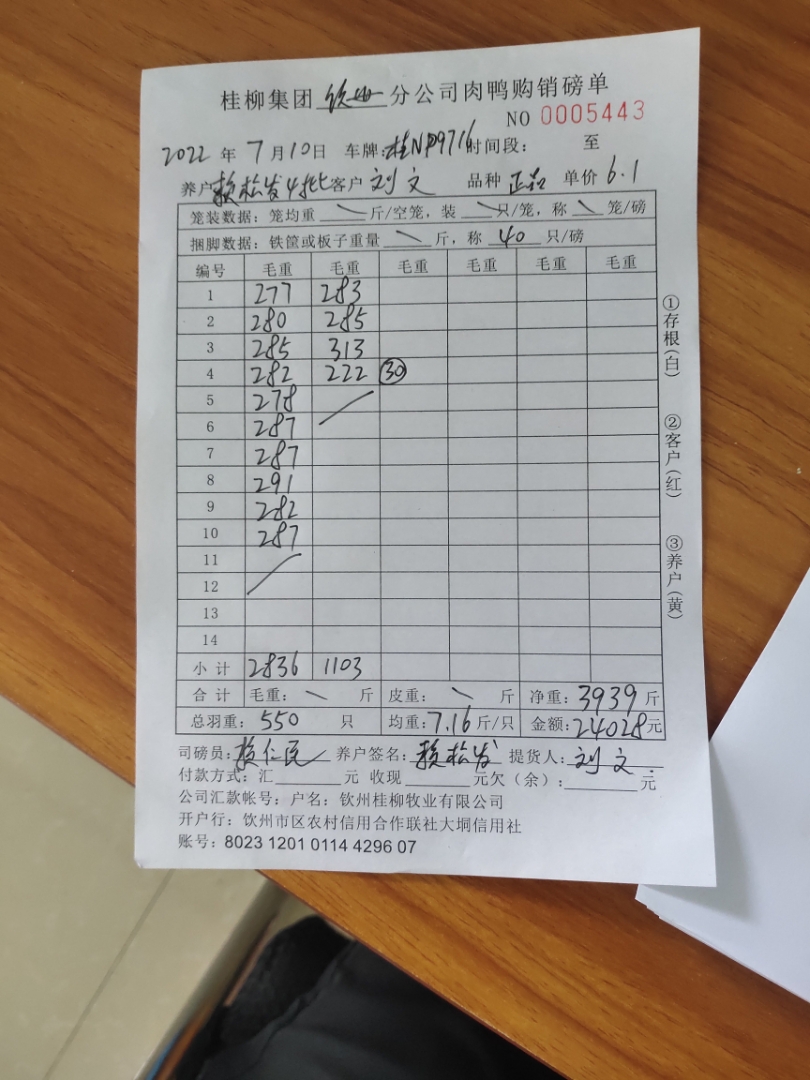 桂柳集团 钦州 分公司肉鸭购销磅单
NO 0005443
2022 年 7 月 10 日 车牌:桂NP9716 时间段: 至
养户 赖松发4批 客户 刘文 品种 正品 单价 6.1
笼装数据:笼均重 \ 斤/空笼,装 \ 只/笼,称 \ 笼/磅
捆脚数据:铁筐或板子重量 \ 斤,称 40 只/磅
编号 毛重 毛重 毛重 毛重 毛重 毛重
1 277 283
2 280 285
3 285 313
4 282 222 ㉚
5 278 /
6 287
7 287
8 291
9 282
10 287
11 /
12
13
14
小计 2836 1103
合计 毛重: \ 斤 皮重: \ 斤 净重:3939 斤
总羽重:550 只 均重:7.16 斤/只 金额:24028 元
司磅员:赖仁民 养户签名:赖松发 提货人:刘文
付款方式:汇______元 收现______元欠(余):______元
公司汇款帐号:户名:钦州桂柳牧业有限公司
开户行:钦州市区农村信用合作联社大垌信用社
账号:8023 1201 0114 4296 07
①存根(白)
②客户(红)
③养户(黄)